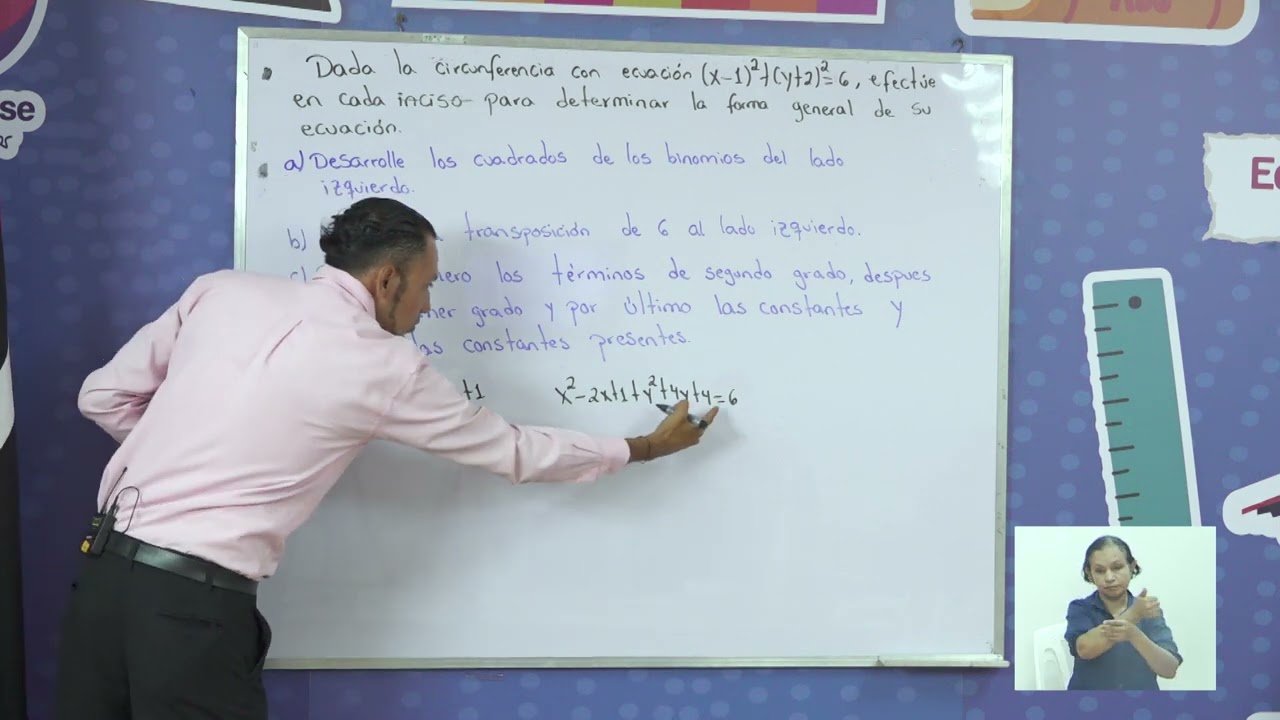 Dada la circunferencia con ecuación (x-1)²+(y+2)²=6, efectúe
en cada inciso para determinar la forma general de su
ecuación.
a) Desarrolle los cuadrados de los binomios del lado
izquierdo.
b) transposición de 6 al lado izquierdo.
los términos de segundo grado, despues
grado y por último las constantes y
constantes presentes.
+1 x²-2x+1+y²+4y+4=6
se